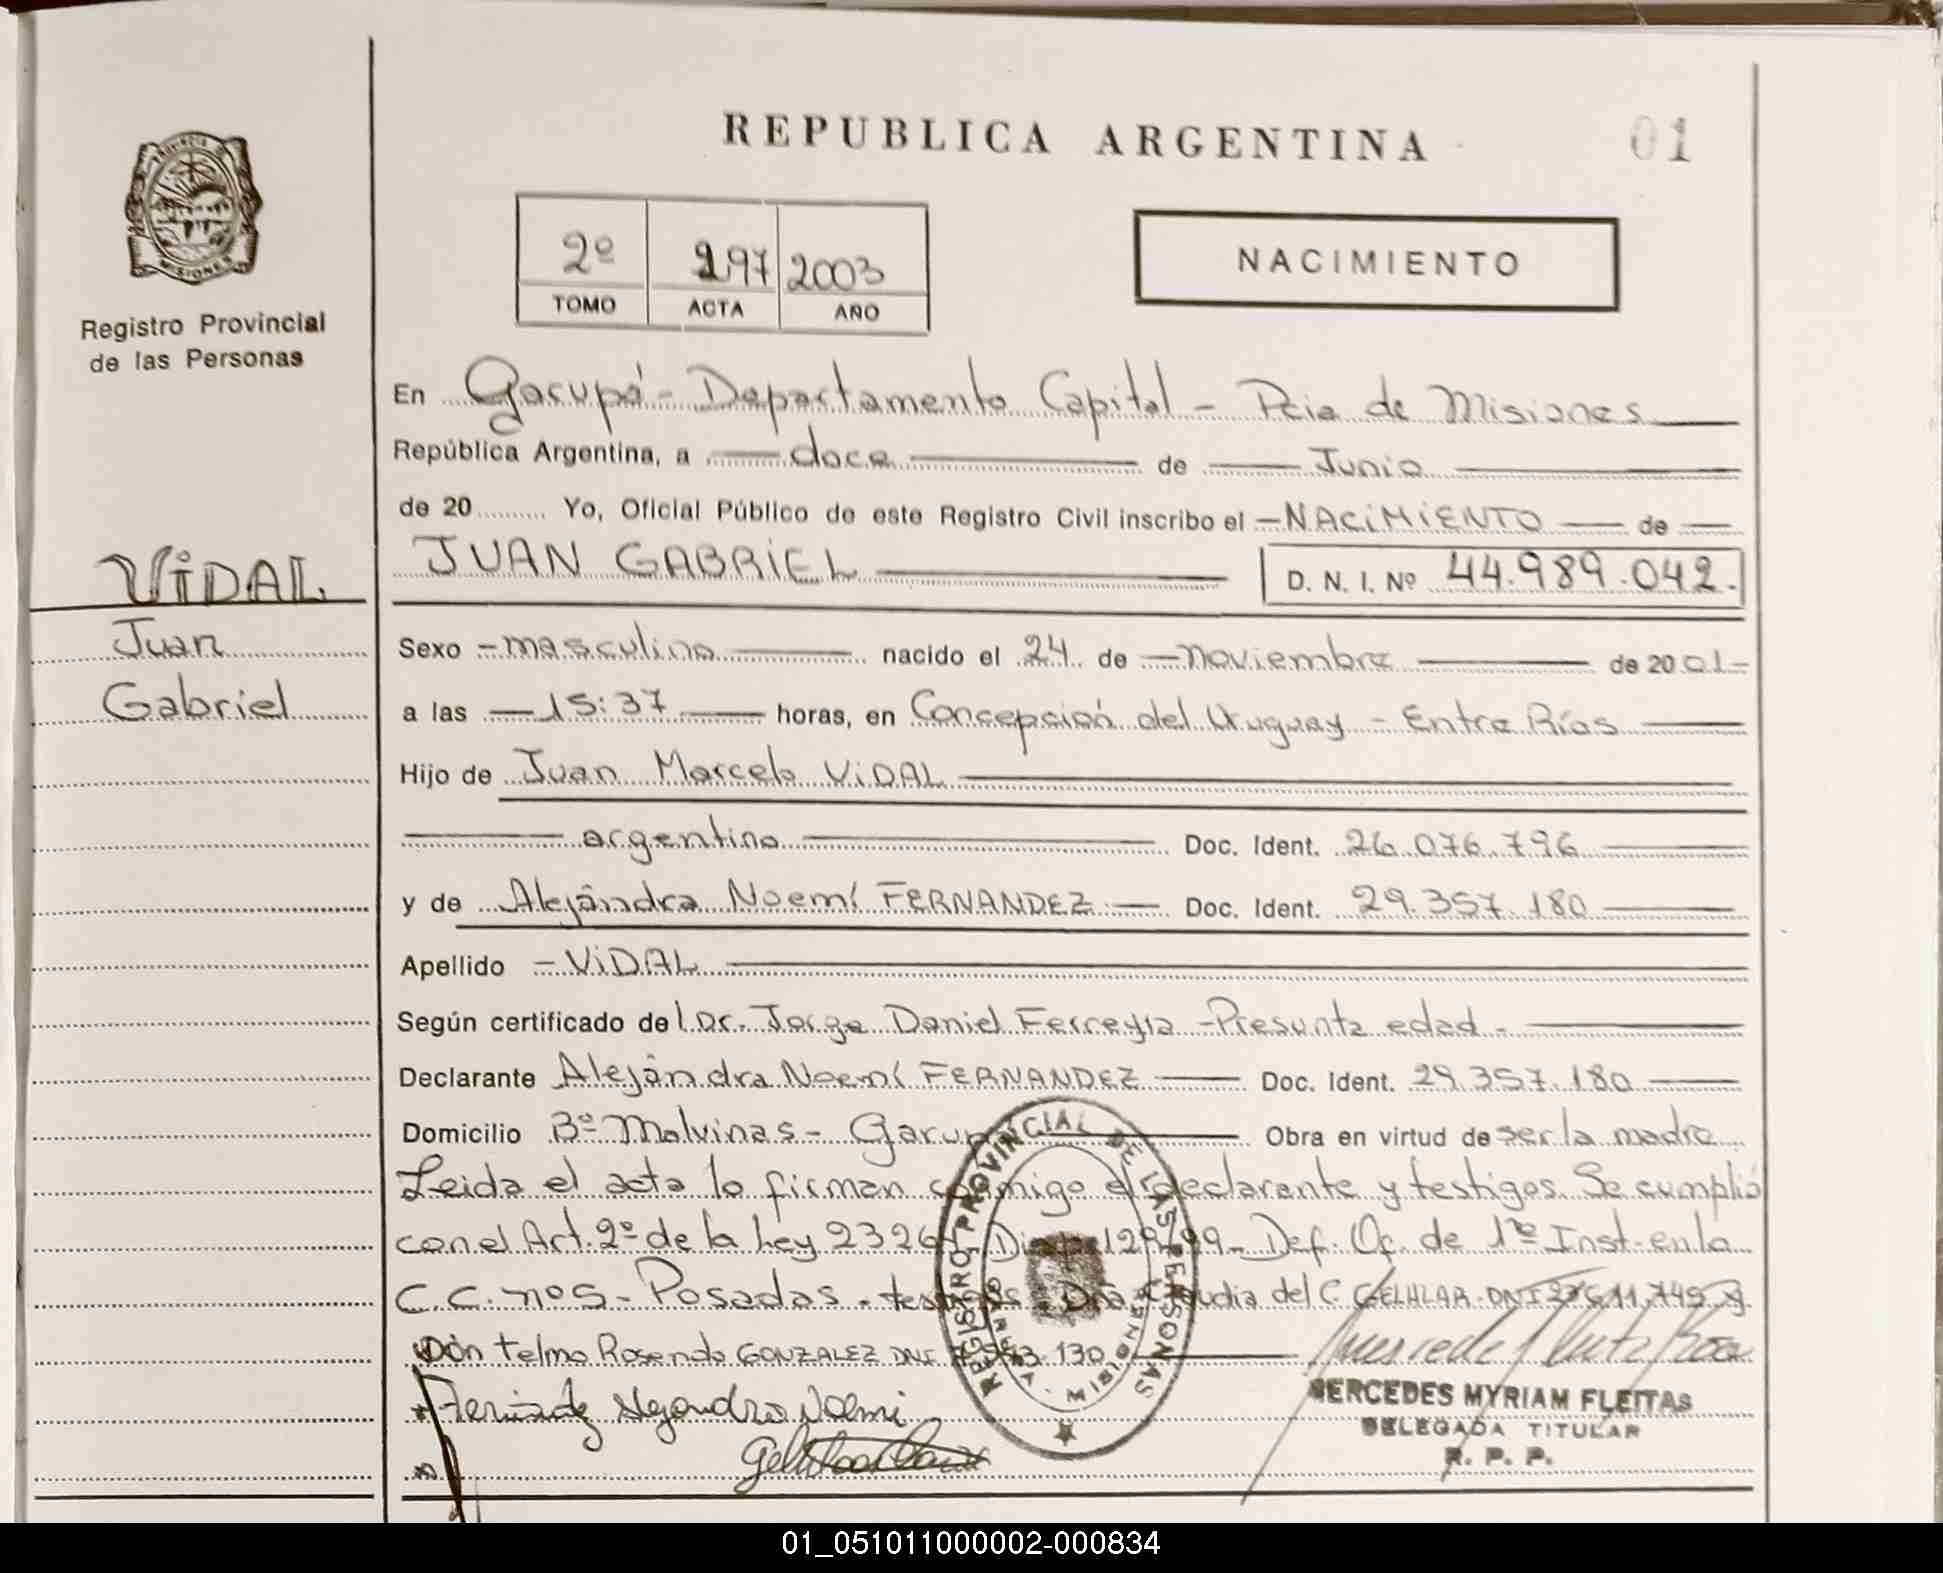 REPUBLICA ARGENTINA
01
PROVINCIA D
MISIONES
Registro Provincial
de las Personas
2º 297 2003
TOMO ACTA AÑO
NACIMIENTO
En Garupá - Departamento Capital - Pcia de Misiones
República Argentina, a doce de Junio
de 20 Yo, Oficial Público de este Registro Civil inscribo el - NACIMIENTO de
VIDAL
Juan
Gabriel
JUAN GABRIEL D. N. I. Nº 44.989.042.
Sexo - masculino nacido el 24 de noviembre de 20 01 -
a las 15:37 horas, en Concepción del Uruguay - Entre Ríos
Hijo de Juan Marcelo VIDAL
argentino Doc. Ident. 26.076.796
y de Alejandra Noemí FERNANDEZ Doc. Ident. 29.357.180
Apellido - VIDAL
Según certificado del Dr. Jorge Daniel Ferreyra - Presunta edad -
Declarante Alejandra Noemí FERNANDEZ Doc. Ident. 29.357.180
Domicilio Bº Malvinas - Garupá Obra en virtud de ser la madre
Leida el acta la firman conmigo el declarante y testigos. Se cumplió
con el Art. 2º de la Ley 2326 Disp. 129/99 - Def. Of. de 1ra Inst. en lo
C.C. nº 5 - Posadas - testigos Dña Claudia del C. GELHLAR DNI
Don Telmo Rosendo GONZALEZ DNI 130
Fernandez Alejandra Noemi
REGISTRO PROVINCIAL DE LAS PERSONAS
MERCEDES MYRIAM FLEITAS
DELEGADA TITULAR
R. P. P.
01_051011000002-000834